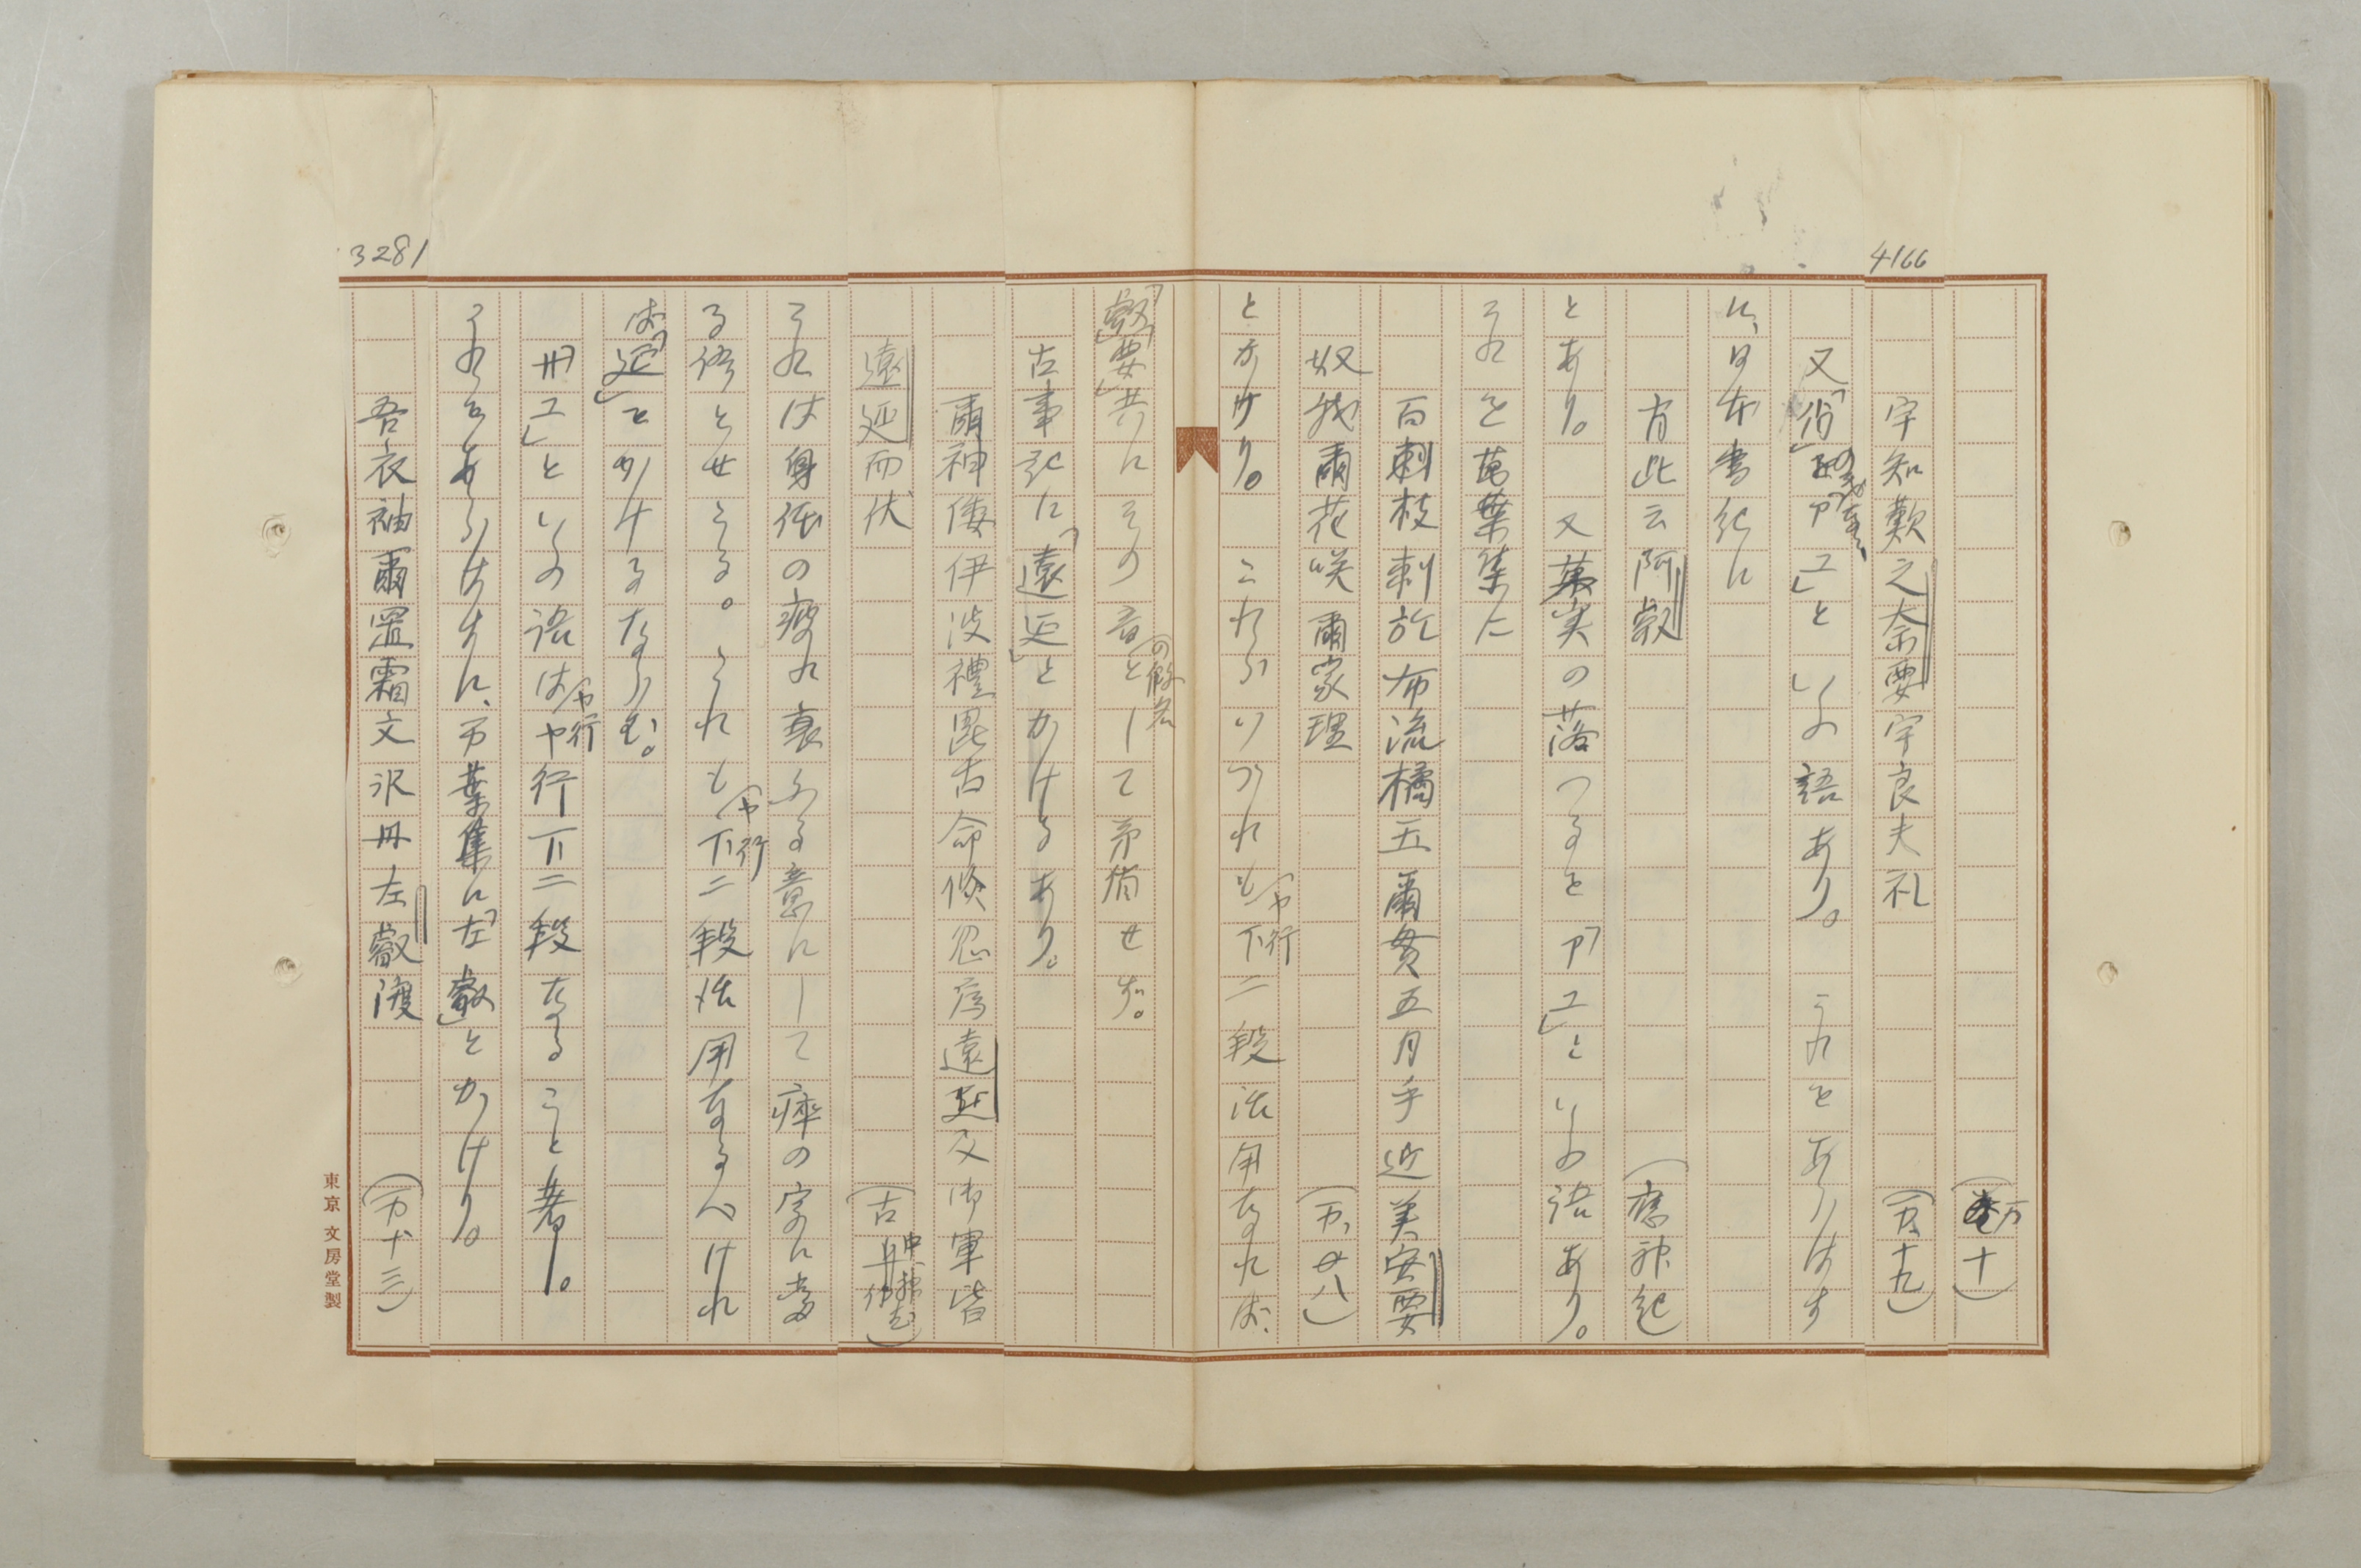 4166
(万十)
宇知歎之奈要宇良夫礼 (万、十九)
又「肖」の義なる「アエ」といふ語あり。これをあらはす
に、日本書紀に
肖此云阿叡 (應神紀)
とあり。又菓実の落つるを「アエ」といふ語あり。
それを萬葉集に
百刺枝刺於布流橘玉爾貫五月乎近美安要
奴我爾花咲爾家理 (万、廿八)
とかけり。これらいづれも(ヤ行)下二段活用なれば、
「叡」「要」共にその音(の假名)として矛盾せず。
古事記に「遠延」とかけるあり。
爾神倭伊波禮毘古命倐忽為遠延及御軍皆
遠延而伏 (古、中、神武)
それは身体の疲れ衰ふる意にして瘁の字に當
る語とせらる。これも(ヤ行)下二段活用なるべけれ
ば「延」とかけるならむ。
「サエ」といふ語は(ヤ行)ヤ行下二段なること著し。
それをあらはすに、万葉集に「左叡」とかけり。
3281
吾衣袖爾置霜文氷丹左叡渡 (万十三)
東京 文房堂製